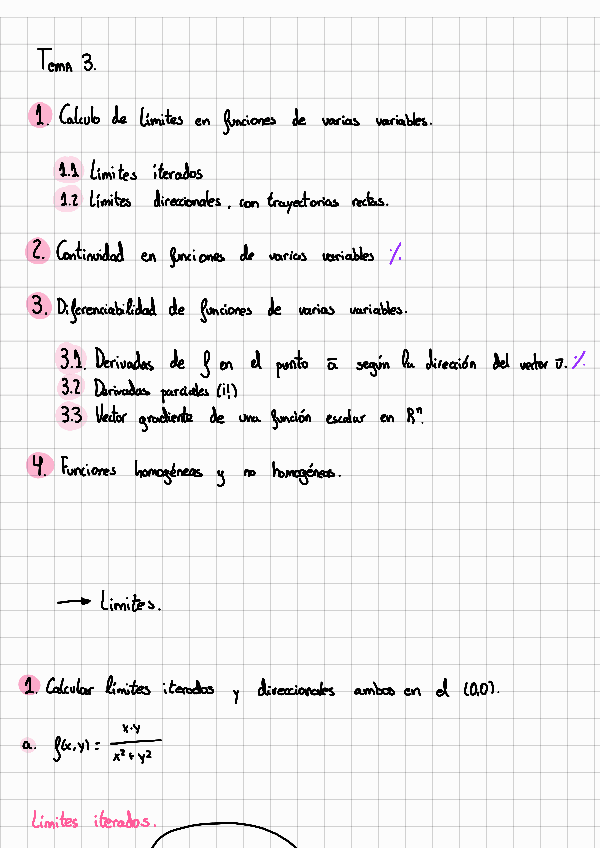 Tema 3.
1. Calculo de límites en funciones de varias variables.
1.1 Límites iterados
1.2 Límites direccionales, con trayectorias rectas.
2. Continuidad en funciones de varias variables ٪
3. Diferenciabilidad de funciones de varias variables.
3.1. Derivadas de f en el punto ā según la dirección del vector v̄. ٪
3.2 Derivadas parciales (¡!)
3.3 Vector gradiente de una función escalar en Rⁿ.
4. Funciones homogéneas y no homogéneas.
→ Limites.
1. Calcular límites iterados y direccionales ambos en el (0,0).
a. f(x,y) = x·y / x² + y²
Límites iterados.